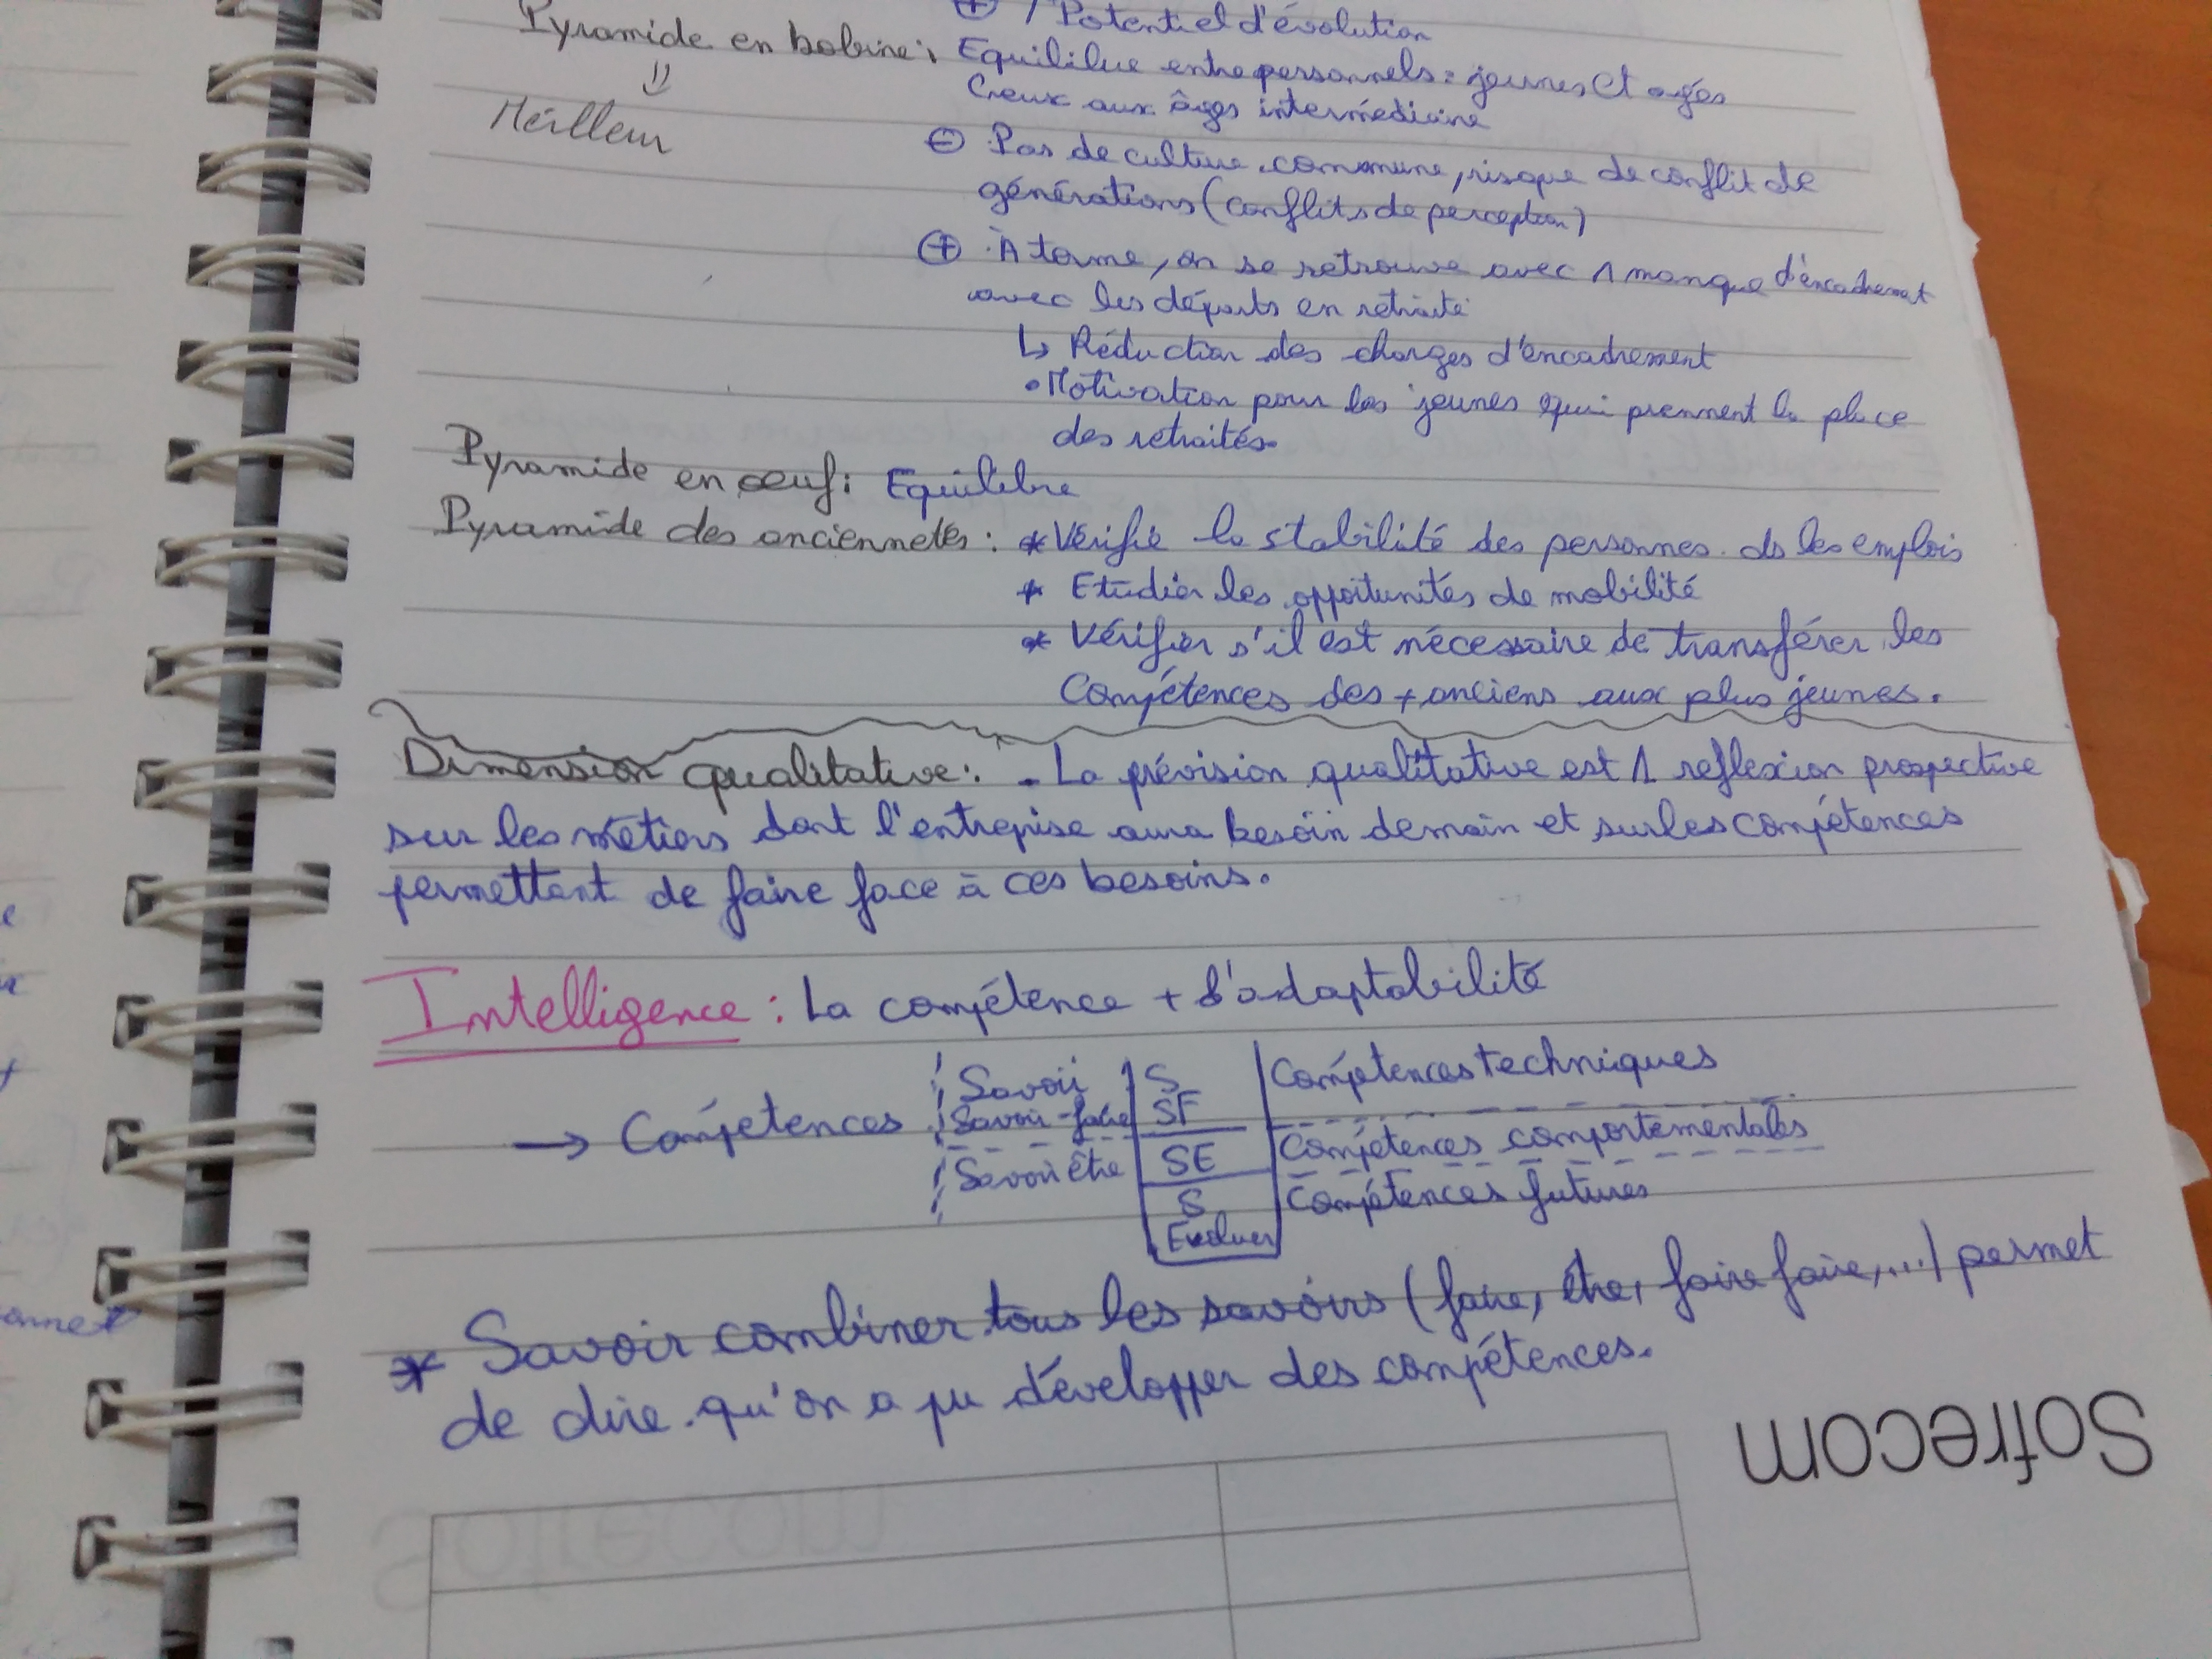 ⊕ Potentiel d'évolution
Pyramide en bobine: Equilibre entre personnels: jeunes et agés
Creux aux âges intermédiaire
Meilleur
⊖ . Pas de culture commune, risque de conflit de
générations (conflits de perception)
⊕ . À terme, on se retrouve avec 1 manque d'encadrement
avec les départs en retraite
↳ Réduction des charges d'encadrement
. Motivation pour les jeunes qui prennent la place
des retraités.
Pyramide en œuf: Equilibre
Pyramide des anciennetés: * Vérifie la stabilité des personnes ds les emplois
* Etudier les opportunités de mobilité
* Vérifier s'il est nécessaire de transférer les
Compétences des + anciens aux plus jeunes.
Dimension qualitative: . La prévision qualitative est 1 reflexion prospective
sur les métiers dont l'entreprise aura besoin demain et sur les compétences
permettant de faire face à ces besoins.
Intelligence : La compétence + l'adaptabilité
Savoir S Compétences techniques
→ Compétences Savoir-faire SF Compétences comportementales
Savoir être SE Compétences futures
S
Evoluer
* Savoir combiner tous les savoirs (faire, être, faire faire, ...) permet
de dire qu'on a pu développer des compétences.
Sofrecom